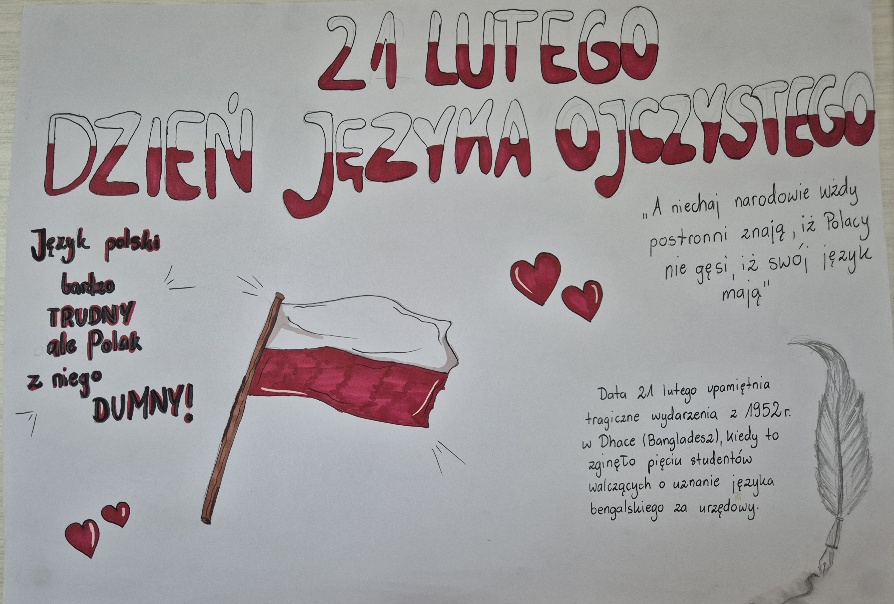 21 LUTEGO
DZIEŃ JĘZYKA OJCZYSTEGO
„A niechaj narodowie wżdy
postronni znają, iż Polacy
nie gęsi, iż swój język
mają"
Język polski
bardzo
TRUDNY
ale Polak
z niego
DUMNY!
Data 21 lutego upamiętnia
tragiczne wydarzenia z 1952r.
w Dhace (Bangladesz), kiedy to
zginęło pięciu studentów
walczących o uznanie języka
bengalskiego za urzędowy.